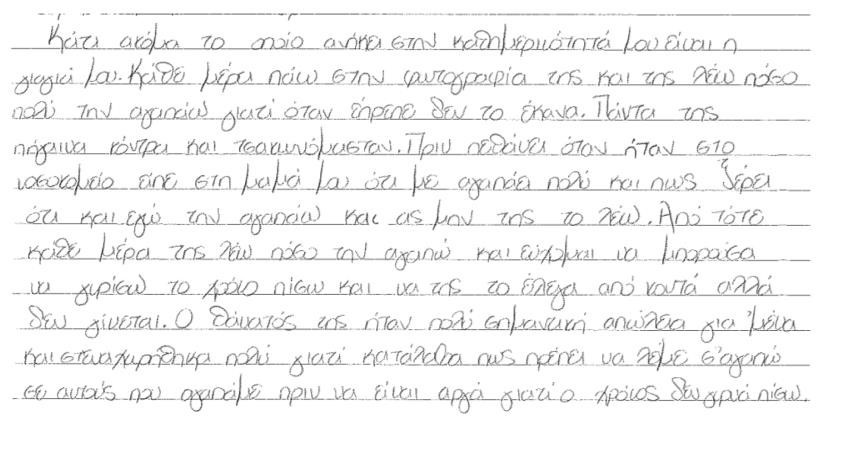 Κάτι ακόμα το οποίο ανήκει στην καθημερινότητά μου είναι η
γιαγιά μου. Κάθε μέρα πάω στην φωτογραφία της και της λέω πόσο
πολύ την αγαπάω γιατί όταν έπρεπε δεν το έκανα. Πάντα της
πήγαινα κόντρα και τσακωνόμασταν. Πριν πεθάνει όταν ήταν στο
νοσοκομείο είπε στη μαμά μου ότι με αγαπάει πολύ και πως ξέρει
ότι και εγώ την αγαπάω και ας μην της το λέω. Από τότε
κάθε μέρα της λέω πόσο την αγαπώ και εύχομαι να μπορούσα
να γυρίσω το χρόνο πίσω και να της το έλεγα από κοντά αλλά
δεν γίνεται. Ο θάνατός της ήταν πολύ σημαντική απώλεια για 'μένα
και στεναχωρήθηκα πολύ γιατί κατάλαβα πως πρέπει να λέμε σ'αγαπώ
σε αυτούς που αγαπάμε πριν να είναι αργά γιατί ο χρόνος δεν γυρνά πίσω.